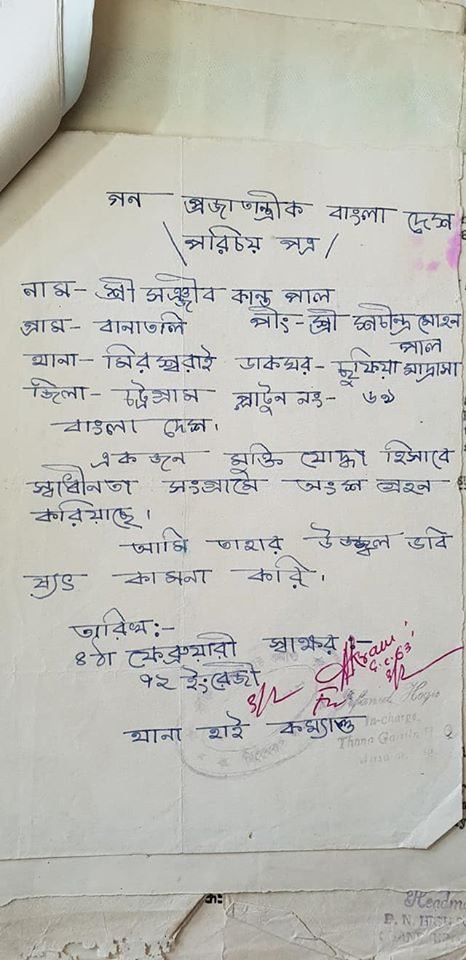 গন প্রজাতন্ত্রীক বাংলা দেশ
\ পরিচয় পত্র /
নাম- শ্রী সঞ্জীব কান্ত পাল
গ্রাম- বানাতলি পীং- শ্রী শচীন্দ্র মোহন
পাল
থানা- মিরশ্বরাই ডাকঘর- ছুফিয়া মাদ্রাসা
জিলা- চট্টগ্রাম প্লাটুন নং- ৬৩
বাংলা দেশ।
এক জন মুক্তি যোদ্ধা হিসাবে
স্বাধীনতা সংগ্রামে অংশ গ্রহন
করিয়াছে।
আমি তাহার উজ্জ্বল ভবি
ষ্যৎ কামনা করি।
তারিখ:-
৪ঠা ফেব্রুয়ারী স্বাক্ষর:-
৭২ ইংরেজী
G.C. 63
3/2
3/2
For
In-charge.
Thana
থানা হাই কম্যান্ড
Headm
P. N. HIGH